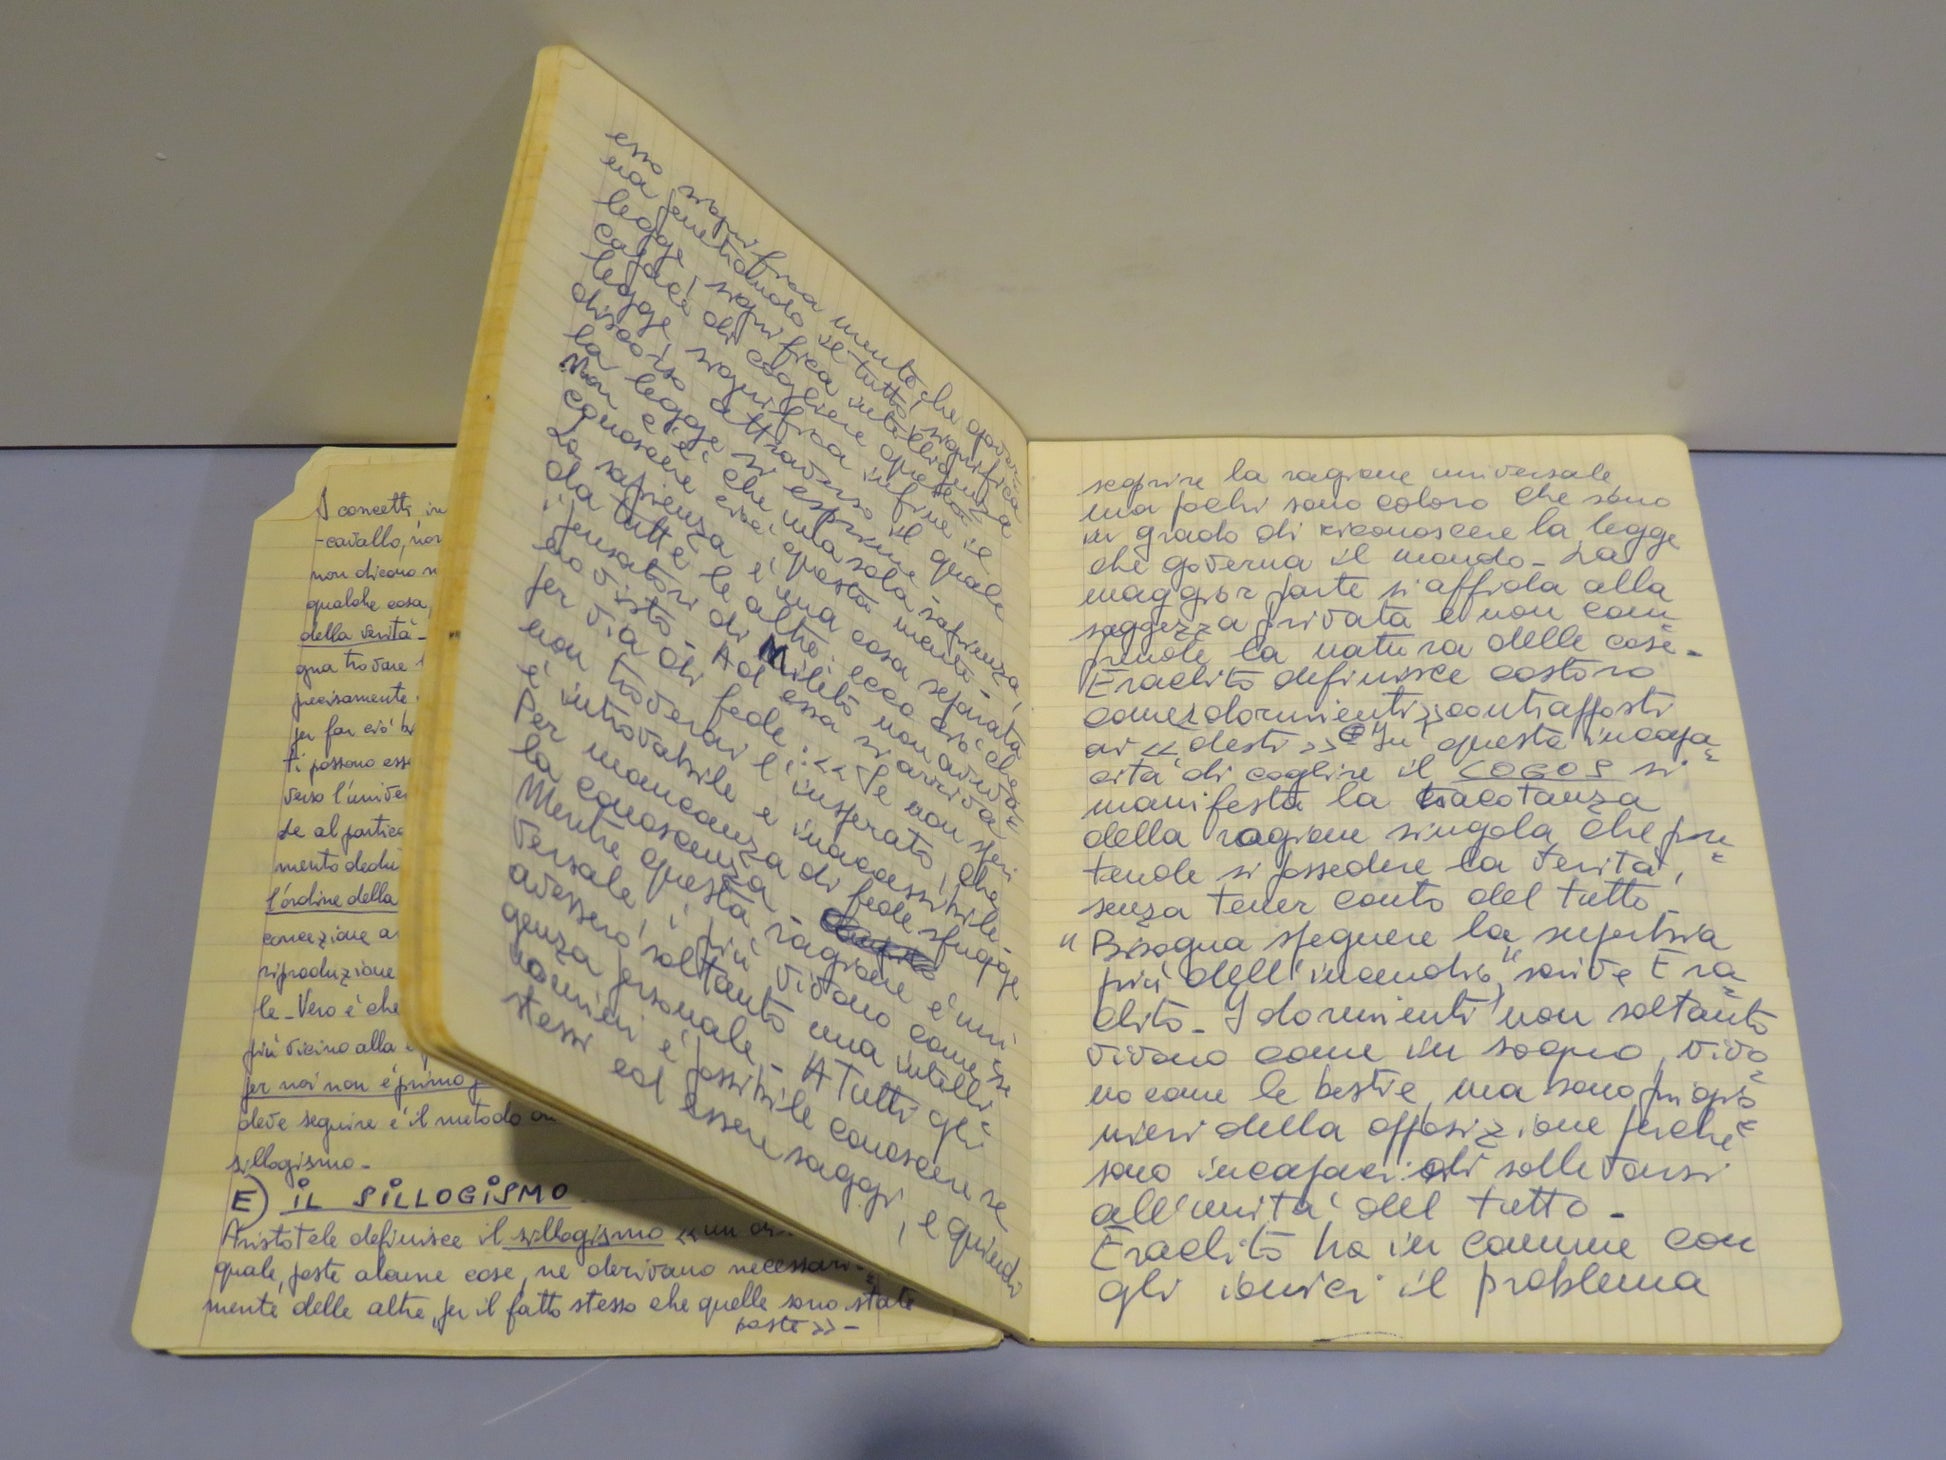 I concetti, in
-cavallo, non
non dicono
qualche cosa,
della verità-
gna trovare
precisamente
per far ciò
ti possono esse
verso l'univer
de al partico
mento dedu
l'ordine della
concezione a
riproduzione
le- Vero è che
più vicino alla
per noi non è primo
deve seguire è il metodo
sillogismo-
E) IL SILLOGISMO
Aristotele definisce il sillogismo «un
quale, poste alcune cose, ne derivano necessaria=
mente delle altre, per il fatto stesso che quelle sono state
poste»-
esso significa mente che gover=
na penetrando il tutto, significa
legge, significa intelligenza
capace di cogliere questa
legge, significa infine il
discorso attraverso il quale
la legge si esprime-
Non c'è che una sola sapienza,
conoscere cioè questa mente-
La sapienza è una cosa separata
da tutte le altre: ecco ciò che
i pensatori di Mileto non avevan
no visto- Ad essa si arriva
per via di fede: «Se non speri
non troverai l'insperato, che
è introvabile e inaccessibile-
Per mancanza di fede sfugge
la conoscenza-
Mentre questa ragione è uni
versale, i più vivono come se
avessero soltanto una intelli=
genza personale- A tutti gli
uomini è possibile conoscere se
stessi ed essere saggi, e quindi
seguire la ragione universale,
ma pochi sono coloro che sono
in grado di riconoscere la legge
che governa il mondo- La
maggior parte si affida alla
saggezza privata e non com=
prende la natura delle cose-
Eraclito definisce costoro
come «dormienti» contrapposti
ai «desti» In questa incapa=
cità di cogliere il LOGOS si
manifesta la tracotanza
della ragione singola che pre=
tende si possedere la verità,
senza tener conto del tutto-
"Bisogna spegnere la superbia
più dell'incendio", scrive Era=
clito- I dormienti non soltanto
vivono come in sogno, vivo=
no come le bestie, ma sono prigio=
nieri della opposizione perché
sono incapaci di sollevarsi
all'unità del tutto-
Eraclito ha in comune con
gli ionici il problema